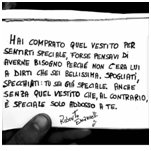 HAI COMPRATO QUEL VESTITO PER
SENTIRTI SPECIALE, FORSE PENSAVI DI
AVERNE BISOGNO PERCHÉ NON C'ERA LUI
A DIRTI CHE SEI BELLISSIMA. SPOGLIATI,
SPECCHIATI: TU SEI GIÀ SPECIALE ANCHE
SENZA QUEL VESTITO CHE, AL CONTRARIO,
È SPECIALE SOLO ADDOSSO A TE.
Roberto
Emanuelli